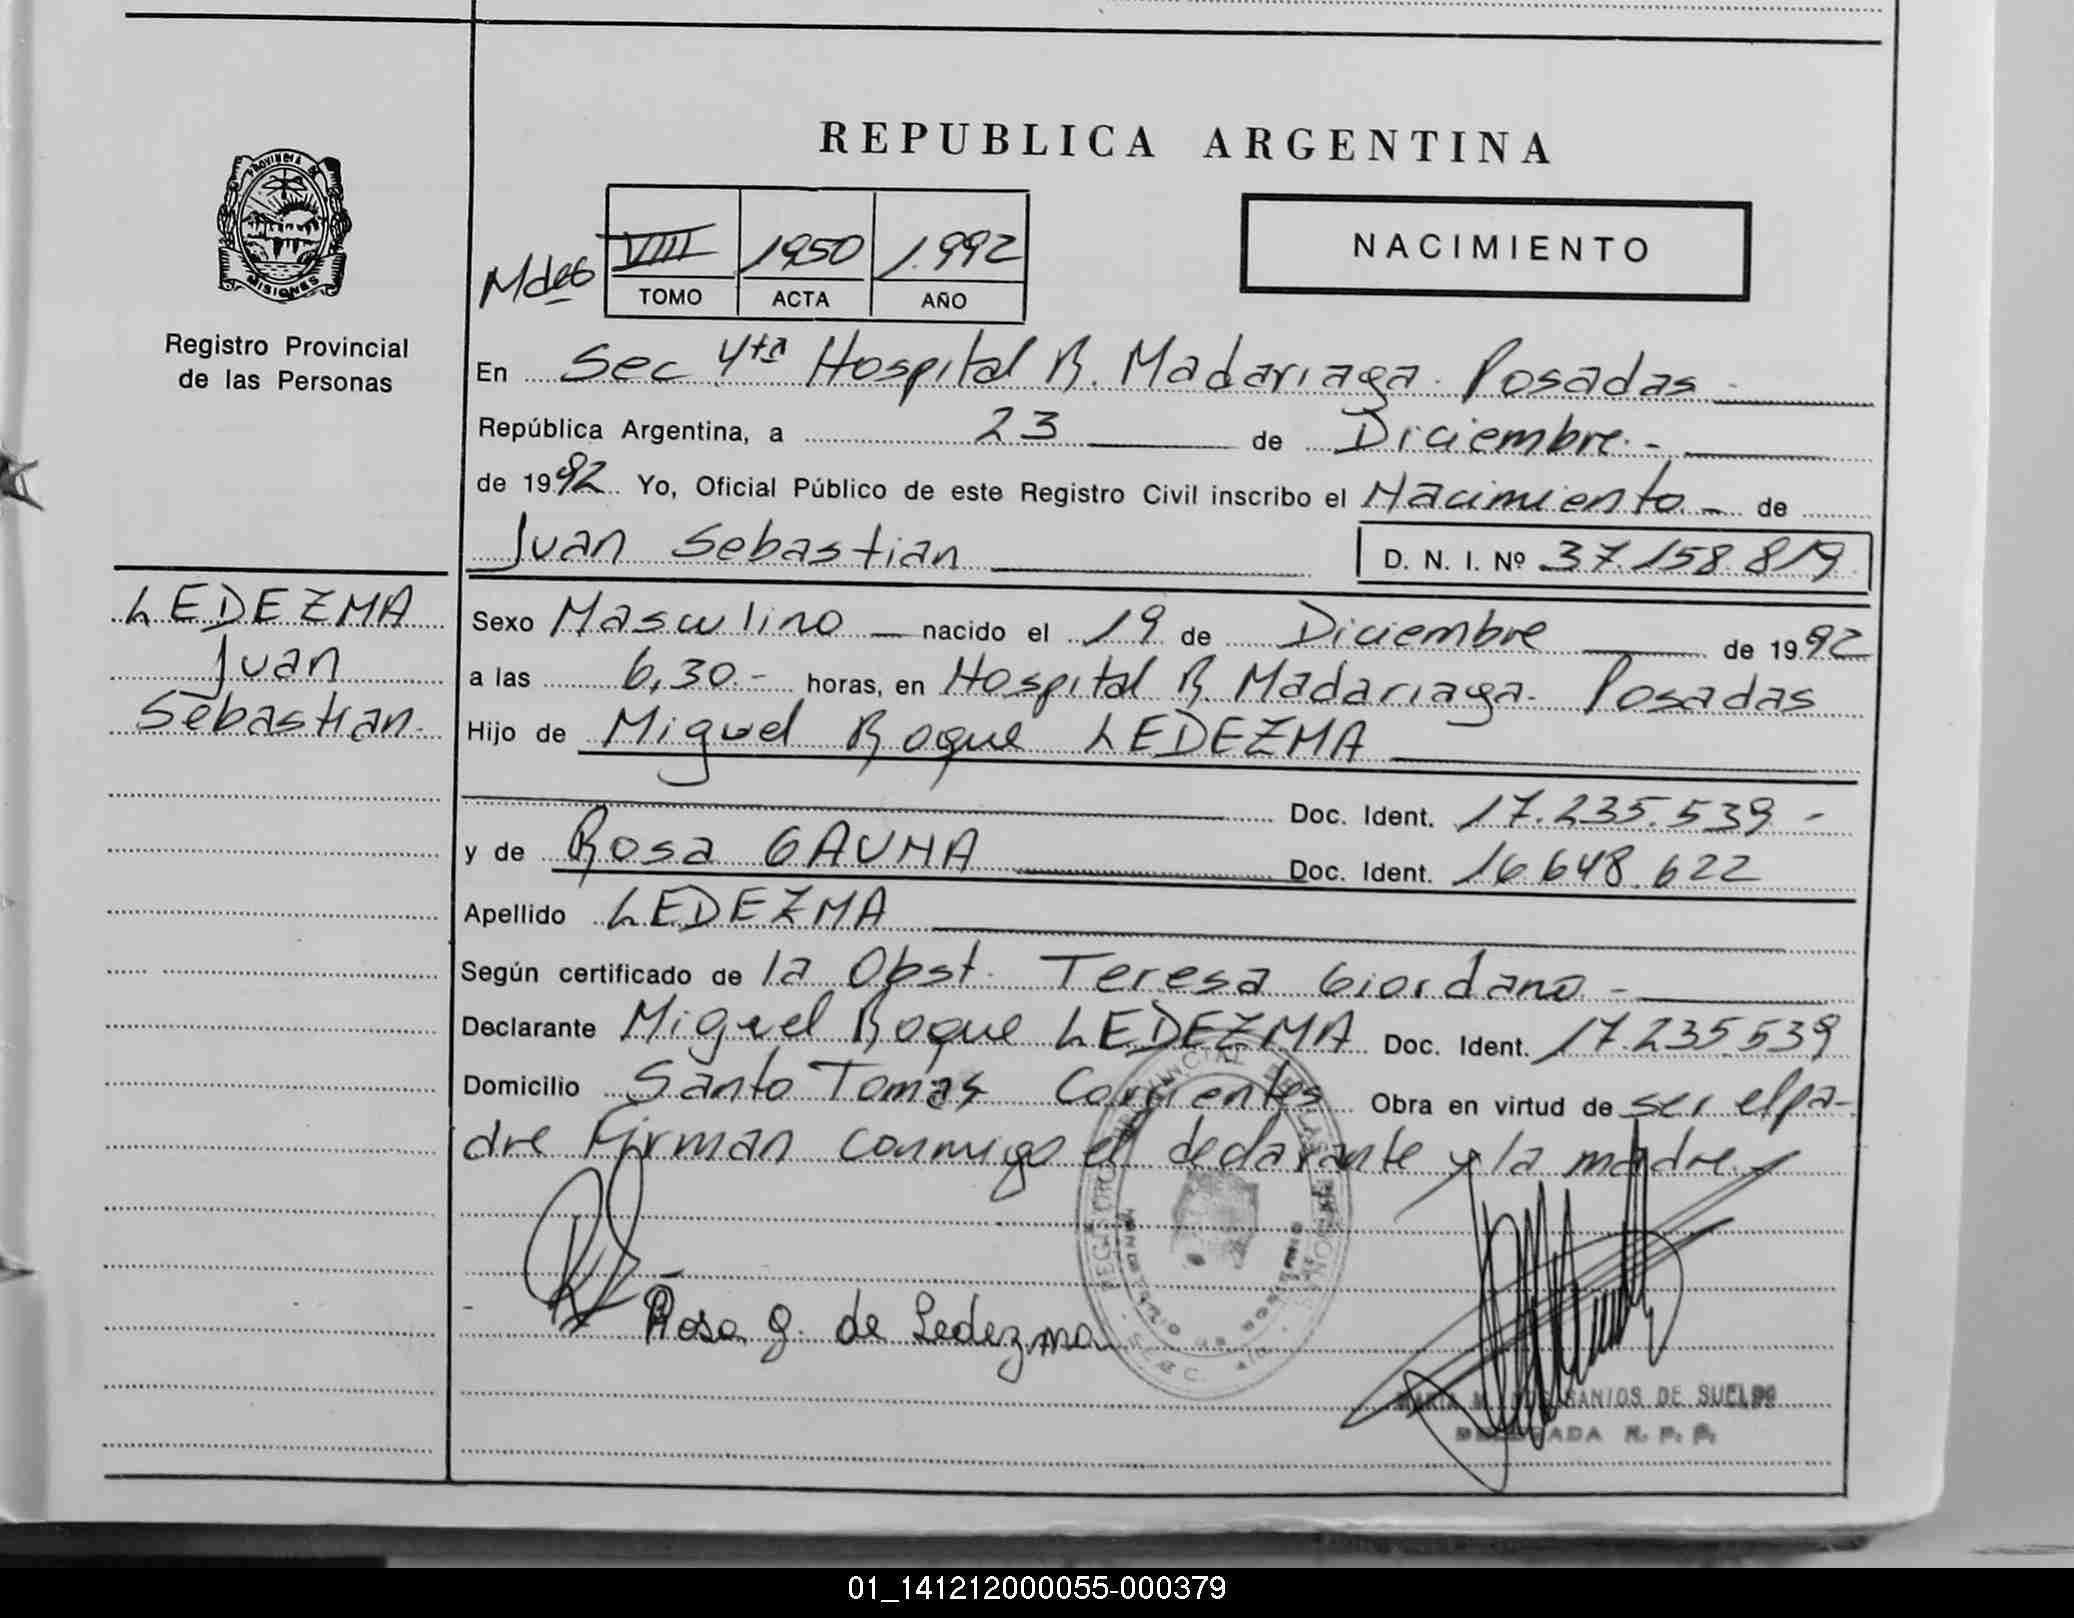 REPUBLICA ARGENTINA
PROVINCIA DE MISIONES
Registro Provincial
de las Personas
VIII 1950 1.992
TOMO ACTA AÑO
NACIMIENTO
En Sec 4ta Hospital R. Madariaga. Posadas
República Argentina, a 23 de Diciembre.-
de 1992 Yo, Oficial Público de este Registro Civil inscribo el Nacimiento de
Juan Sebastian D. N. I. Nº 37.158.819
LEDEZMA
Juan
Sebastian.
Sexo Masculino nacido el 19 de Diciembre de 1992
a las 6,30.- horas, en Hospital R. Madariaga. Posadas
Hijo de Miguel Roque LEDEZMA
Doc. Ident. 17.235.539 -
y de Rosa GAUNA Doc. Ident. 16.648.622
Apellido LEDEZMA
Según certificado de la Obst. Teresa Giordano -
Declarante Miguel Roque LEDEZMA Doc. Ident. 17.235.539
Domicilio Santo Tomás Corrientes Obra en virtud de ser el pa-
dre Firman conmigo el declarante y la madre.
Rosa G. de Ledezma
SANTOS DE SUELDO
DELEGADA R. P. P.
01_141212000055-000379